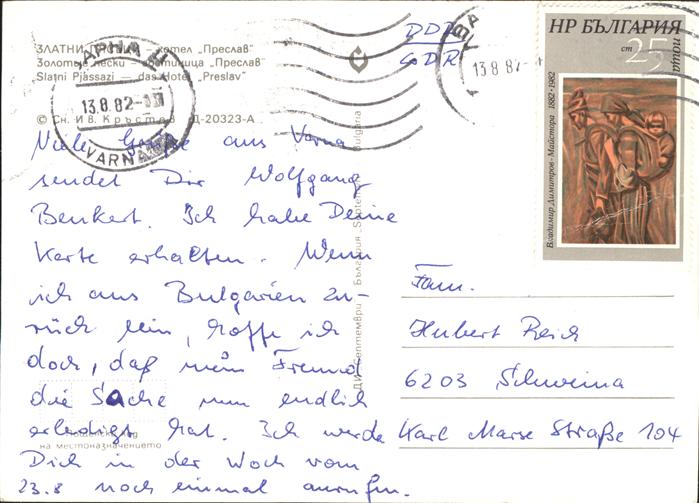 ЗЛАТНИ ПЯСЪЦИ – хотел "Преслав"
Золотые пески – гостиница "Преслав"
Slatni Pjassazi – das Hotel „Preslav"
© Сн. Ив. Кръстев Д-20323-А
DDR
GDR
ВАРНА
13.8.82
VARNA
13.8.82
НР БЪЛГАРИЯ
поща
ст 25
Владимир Димитров-Майстора 1882·1982
Viele Grüße aus Varna
sendet Dir Wolfgang
Benkert. Ich habe Deine
Karte erhalten. Wenn
ich aus Bulgarien zu-
rück bin, hoffe ich
doch, daß mein Freund
die Sache nun endlich
erledigt hat. Ich werde
Dich in der Woch vom
23.8 noch einmal anrufen.
Fam.
Hubert Reich
6203 Schweina
Karl Marx Straße 104
ДИ „Септември" България
Bulgaria
на местоназначението